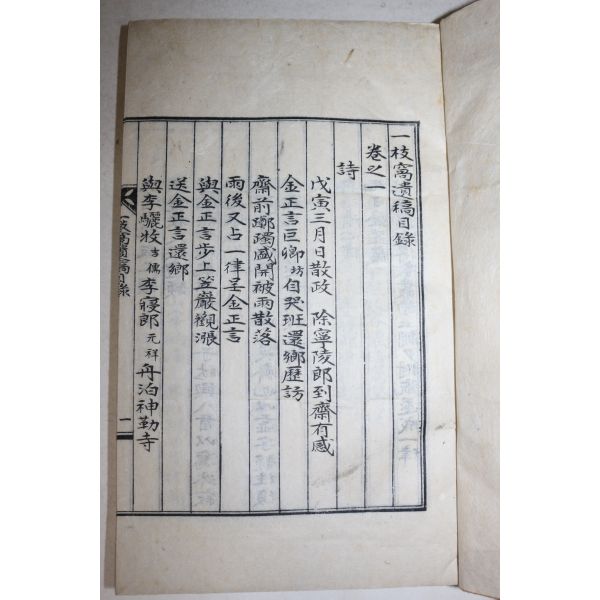 一枝窩遺稿目錄
卷之一
詩
戊寅三月日散政 除寧陵郎到齋有感
金正言巨卿坊自哭班還鄉歷訪
齋前躑躅盛開被雨散落
雨後又占一律呈金正言
與金正言步上笠巖觀漲
送金正言還鄉
與李驪牧吉儒李寢郎元祥舟泊神勒寺
一枝窩遺稿目錄
一